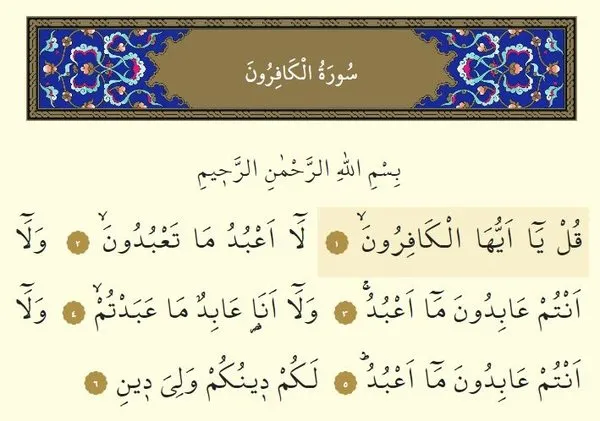 سُورَةُ الْكَافِرُونَ
بِسْمِ اللّٰهِ الرَّحْمٰنِ الرَّح۪يمِ
قُلْ يَٓا اَيُّهَا الْكَافِرُونَۙ ١ لَٓا اَعْبُدُ مَا تَعْبُدُونَۙ ٢ وَلَٓا
اَنْتُمْ عَابِدُونَ مَٓا اَعْبُدُۚ ٣ وَلَٓا اَنَا۬ عَابِدٌ مَا عَبَدْتُمْۙ ٤ وَلَٓا
اَنْتُمْ عَابِدُونَ مَٓا اَعْبُدُۜ ٥ لَكُمْ د۪ينُكُمْ وَلِيَ د۪ينِ ٦